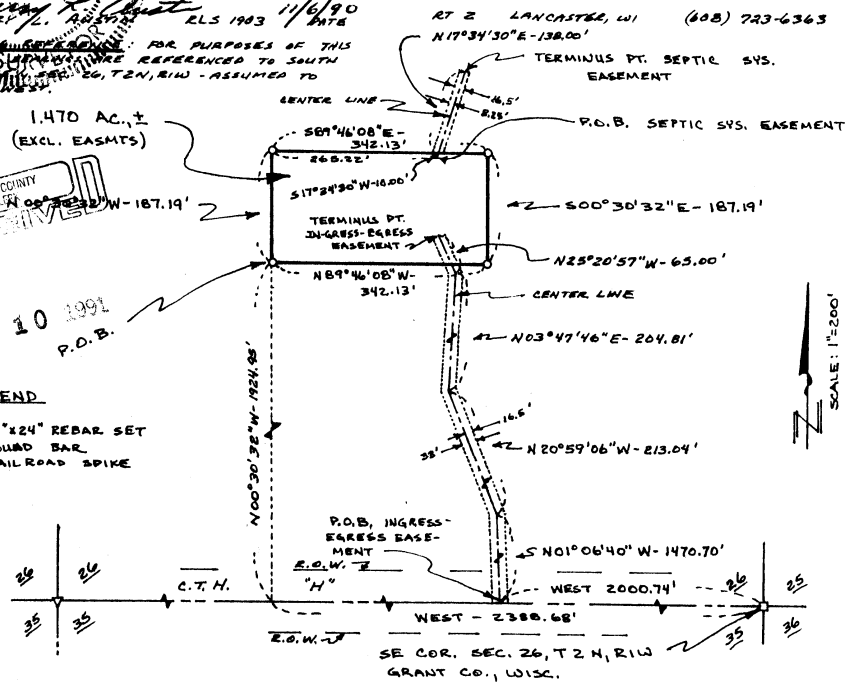 RLS 1903
11/6/90
DATE
RT 2 LANCASTER, WI (608) 723-6363
REFERENCE: FOR PURPOSES OF THIS
ARE REFERENCED TO SOUTH
26, T2N, R1W - ASSUMED TO
WEST.
N17°34'30"E-138.00'
TERMINUS PT. SEPTIC SYS.
EASEMENT
CENTER LINE
16.5'
8.25'
P.O.B. SEPTIC SYS. EASEMENT
1.470 AC.,±
(EXCL. EASMTS)
S89°46'08"E-
342.13'
265.22'
S17°34'30"W-18.00'
COUNTY
N 00°30'32"W-187.19'
S00°30'32"E-187.19'
TERMINUS PT.
IN-GRESS-EGRESS
EASEMENT
N25°20'57"W-65.00'
N89°46'08"W-
342.13'
CENTER LINE
10 1991
P.O.B.
N03°47'46"E-204.81'
SCALE: 1"=200'
N
N00°30'32"W-1924.95'
END
"x24" REBAR SET
BAR
RAILROAD SPIKE
16.5'
33'
N20°59'06"W-213.04'
P.O.B, INGRESS-
EGRESS EASE-
MENT
S N01°06'40"W-1470.70'
R.O.W.
C.T.H. "H"
WEST 2000.74'
26 26
26 25
WEST - 2388.68'
35 35
35 36
R.O.W.
SE COR. SEC. 26, T2N, R1W
GRANT CO., WISC.